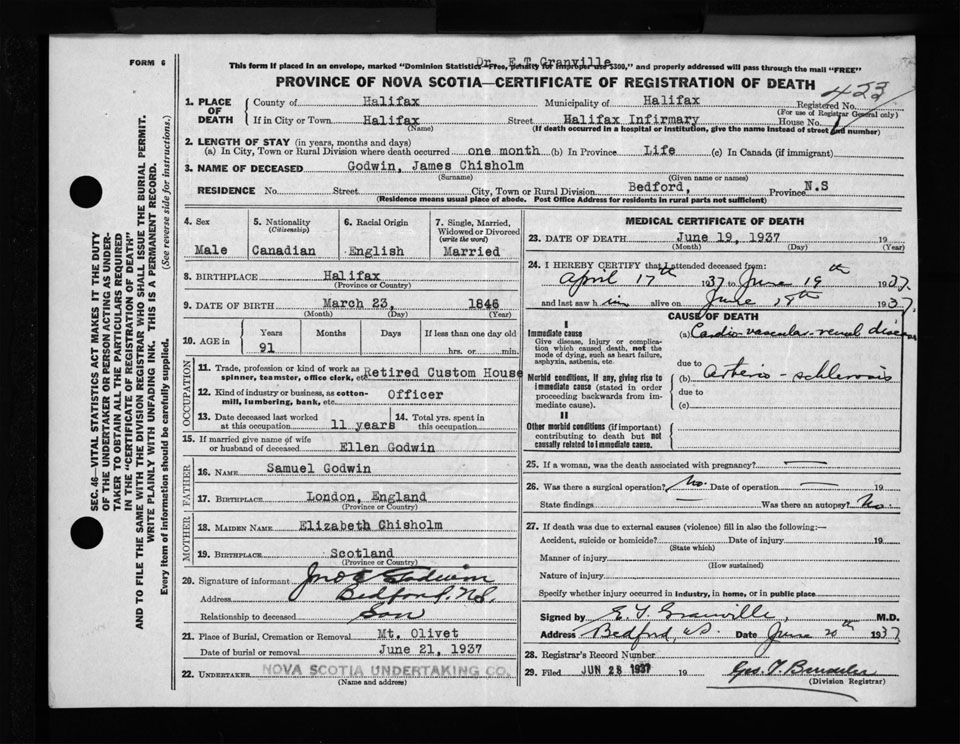 FORM 6
This form if placed in an envelope, marked "Dominion Statistics—Free, penalty for improper use $300," and properly addressed will pass through the mail "FREE"
Dr. E.T. Granville
PROVINCE OF NOVA SCOTIA—CERTIFICATE OF REGISTRATION OF DEATH
423
1. PLACE OF DEATH
County of Halifax Municipality of Halifax Registered No.
(For use of Registrar General only)
If in City or Town Halifax Street Halifax Infirmary House No.
(Name) (If death occurred in a hospital or institution, give the name instead of street and number)
2. LENGTH OF STAY (in years, months and days)
(a) In City, Town or Rural Division where death occurred one month (b) In Province Life (c) In Canada (if immigrant)
3. NAME OF DECEASED Godwin, James Chisholm
(Surname) (Given name or names)
RESIDENCE No. Street City, Town or Rural Division Bedford, Province N.S
(Residence means usual place of abode. Post Office Address for residents in rural parts not sufficient)
4. Sex Male
5. Nationality (Citizenship) Canadian
6. Racial Origin English
7. Single, Married, Widowed or Divorced (write the word) Married
8. BIRTHPLACE Halifax
(Province or Country)
9. DATE OF BIRTH March 23, 1846
(Month) (Day) (Year)
10. AGE in Years Months Days If less than one day old
91 hrs. or min.
OCCUPATION
11. Trade, profession or kind of work as spinner, teamster, office clerk, etc. Retired Custom House
12. Kind of industry or business, as cotton-mill, lumbering, bank, etc. Officer
13. Date deceased last worked at this occupation 11 years
14. Total yrs. spent in this occupation
15. If married give name of wife or husband of deceased Ellen Godwin
FATHER
16. NAME Samuel Godwin
17. BIRTHPLACE London, England
(Province or Country)
MOTHER
18. MAIDEN NAME Elizabeth Chisholm
19. BIRTHPLACE Scotland
(Province or Country)
20. Signature of informant Godwin
Address Bedford, N.S.
Relationship to deceased Son
21. Place of Burial, Cremation or Removal Mt. Olivet
Date of burial or removal June 21, 1937
22. UNDERTAKER NOVA SCOTIA UNDERTAKING CO.
(Name and address)
MEDICAL CERTIFICATE OF DEATH
23. DATE OF DEATH June 19, 1937 19
(Month) (Day) (Year)
24. I HEREBY CERTIFY that I attended deceased from:
April 17th 1937 to June 19th 1937
and last saw him alive on June 18th 1937
CAUSE OF DEATH
I
Immediate cause
Give disease, injury or complication which caused death, not the mode of dying, such as heart failure, asphyxia, asthenia, etc.
(a) Cardio-vascular-renal disease
due to
Morbid conditions, if any, giving rise to immediate cause (stated in order proceeding backwards from immediate cause).
(b) Arterio-schlerosis
due to
(c)
II
Other morbid conditions (if important) contributing to death but not causally related to immediate cause.
25. If a woman, was the death associated with pregnancy? —
26. Was there a surgical operation? No. Date of operation — 19
State findings — Was there an autopsy? No.
27. If death was due to external causes (violence) fill in also the following:—
Accident, suicide or homicide? Date of injury 19
(State which)
Manner of injury
(How sustained)
Nature of injury
Specify whether injury occurred in industry, in home, or in public place
Signed by E T Granville, M.D.
Address Bedford, N.S. Date June 20th 1937
28. Registrar's Record Number
29. Filed JUN 28 1937 19
(Division Registrar)
SEC. 46—VITAL STATISTICS ACT MAKES IT THE DUTY
OF THE UNDERTAKER OR PERSON ACTING AS UNDER-
TAKER TO OBTAIN ALL THE PARTICULARS REQUIRED
IN THE "CERTIFICATE OF REGISTRATION OF DEATH"
AND TO FILE THE SAME WITH THE DIVISION REGISTRAR WHO SHALL ISSUE THE BURIAL PERMIT.
WRITE PLAINLY WITH UNFADING INK. THIS IS A PERMANENT RECORD.
Every item of information should be carefully supplied. (See reverse side for instructions.)